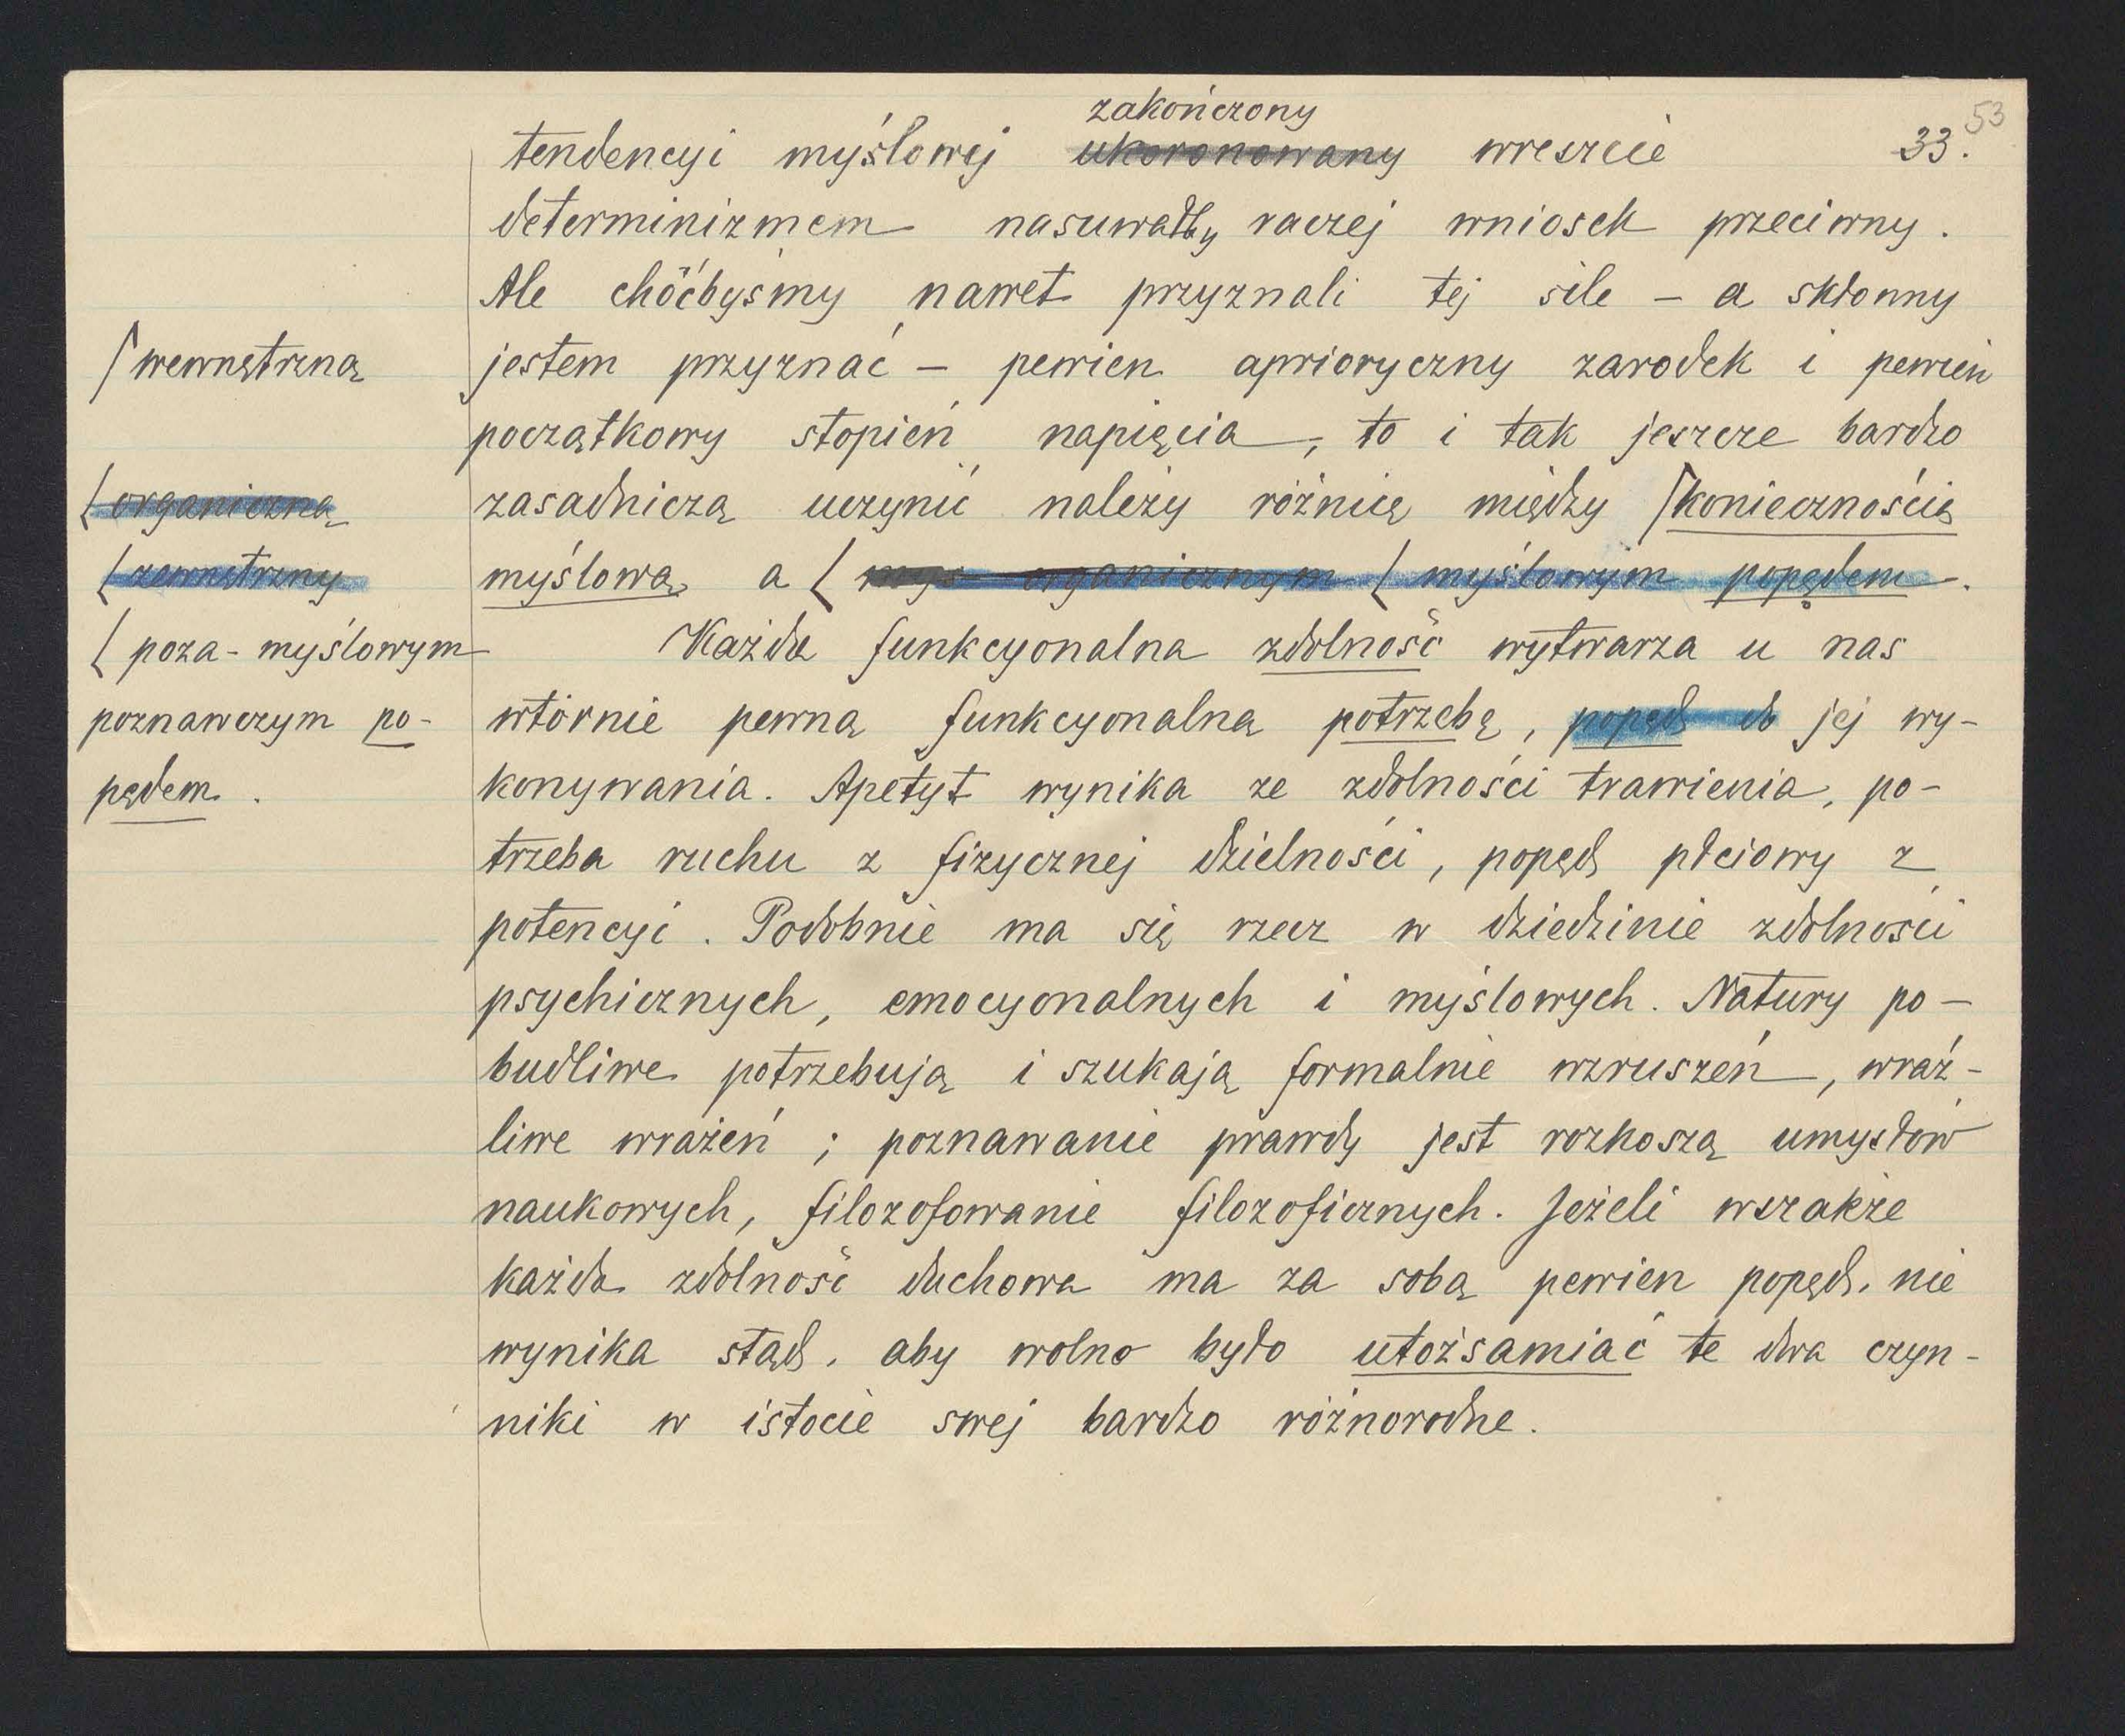 53
zakończony
tendencyi myślowej ukoronowany wreszcie 33.
determinizmem nasuwałby raczej wniosek przeciwny.
Ale choćbyśmy nawet przyznali tej sile – a skłonny
⌈wewnętrzną
jestem przyznać – pewien aprioryczny zarodek i pewien
początkowy stopień napięcia, to i tak jeszcze bardzo
⌊organiczną
zasadniczą uczynić należy różnicę między ⌈koniecznością
⌊zewnętrzny
myślową a ⌊ myś organicznym ⌊ myślowym popędem.
⌊ poza-myślowym
Każda funkcyonalna zdolność wytwarza u nas
poznawczym po-
wtórnie pewną funkcyonalną potrzebę, popęd do jej wy-
pędem.
konywania. Apetyt wynika ze zdolności trawienia, po-
trzeba ruchu z fizycznej dzielności, popęd płciowy z
potencyi. Podobnie ma się rzecz w dziedzinie zdolności
psychicznych, emocyonalnych i myślowych. Natury po-
budliwe potrzebują i szukają formalnie wzruszeń, wraż-
liwe wrażeń; poznawanie prawdy jest rozkoszą umysłów
naukowych, filozofowanie filozoficznych. Jeżeli wszakże
każda zdolność duchowa ma za sobą pewien popęd, nie
wynika stąd, aby wolno było utożsamiać te dwa czyn-
niki w istocie swej bardzo różnorodne.